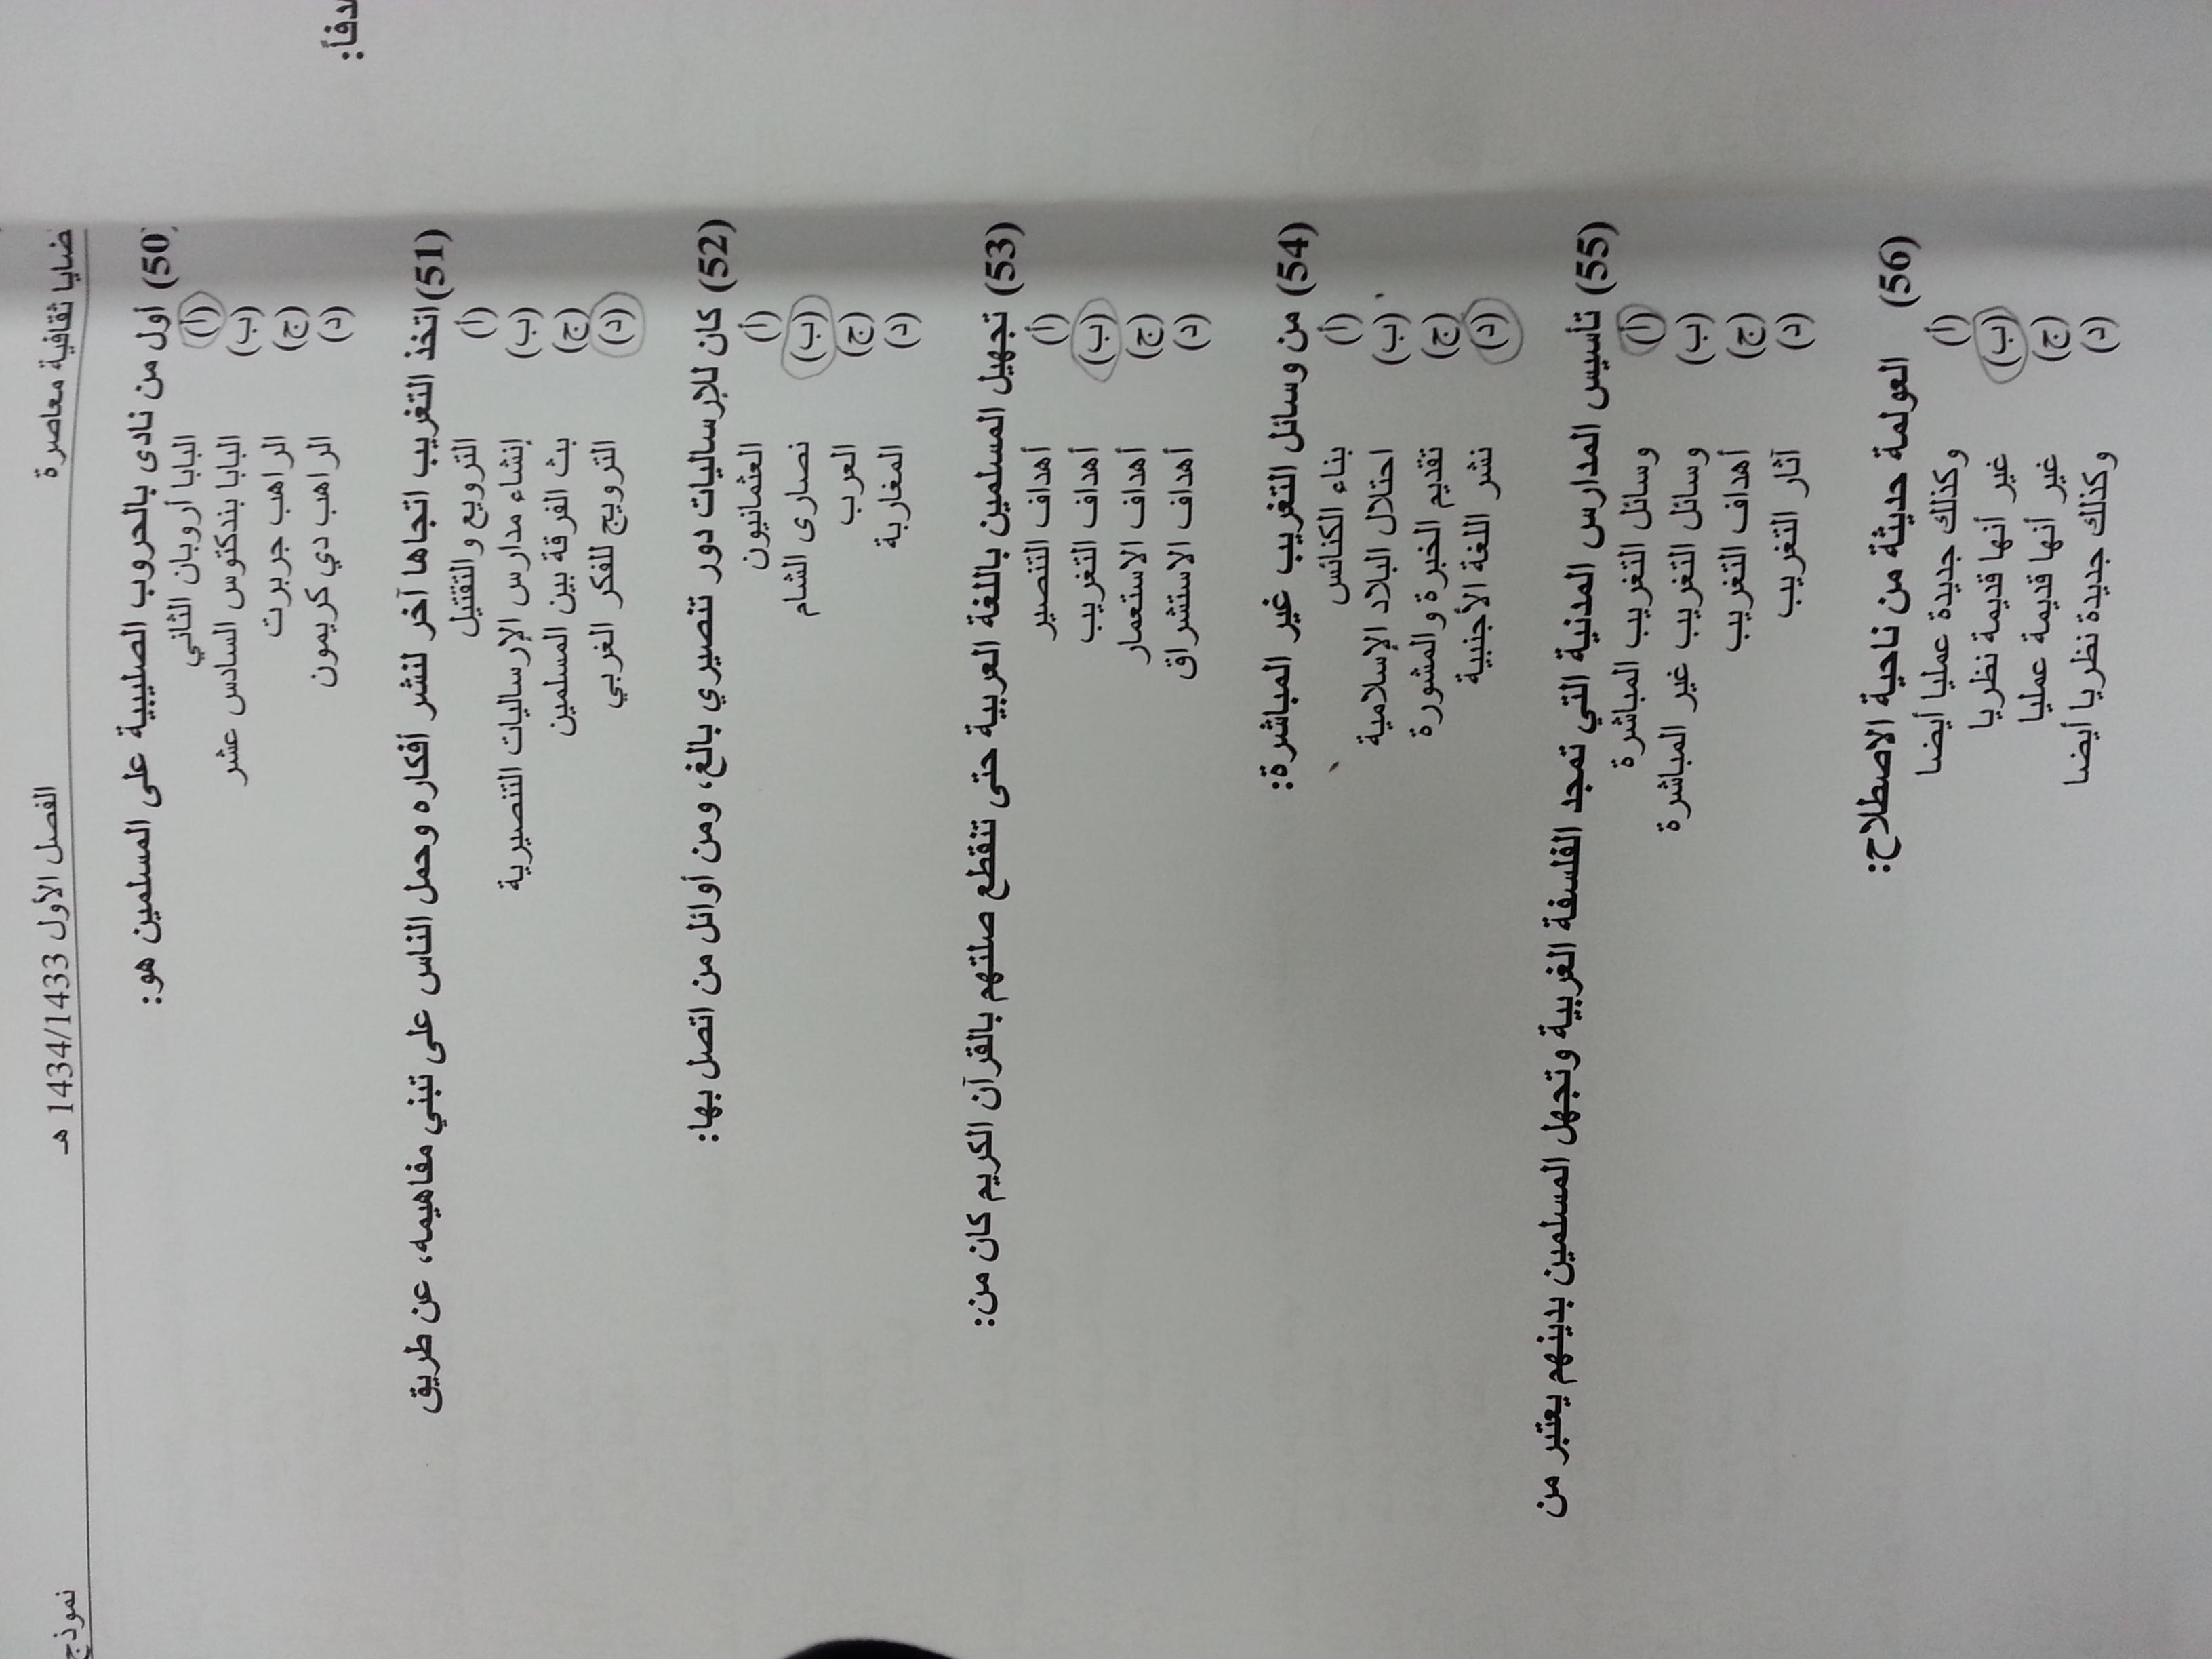 ضايا ثقافية معاصرة الفصل الأول 1434/1433 هـ نموذج
50) أول من نادى بالحروب الصليبية على المسلمين هو:
(أ) البابا أروبان الثاني
(ب) البابا بندكتوس السادس عشر
(ج) الراهب جربرت
(د) الراهب دي كريمون
(51) اتخذ التغريب اتجاها آخر لنشر أفكاره وحمل الناس على تبني مفاهيمه، عن طريق
(أ) الترويع والتقتيل
(ب) إنشاء مدارس الإرساليات التنصيرية
(ج) بث الفرقة بين المسلمين
(د) الترويج للفكر الغربي
(52) كان للإرساليات دور تنصيري بالغ، ومن أوائل من اتصل بها:
(أ) العثمانيون
(ب) نصارى الشام
(ج) العرب
(د) المغاربة
(53) تجهيل المسلمين باللغة العربية حتى تنقطع صلتهم بالقرآن الكريم كان من:
(أ) أهداف التنصير
(ب) أهداف التغريب
(ج) أهداف الاستعمار
(د) أهداف الاستشراق
(54) من وسائل التغريب غير المباشرة:
(أ) بناء الكنائس
(ب) احتلال البلاد الإسلامية
(ج) تقديم الخبرة والمشورة
(د) نشر اللغة الأجنبية
(55) تأسيس المدارس المدنية التي تمجد الفلسفة الغربية وتجهل المسلمين بدينهم يعتبر من
(أ) وسائل التغريب المباشرة
(ب) وسائل التغريب غير المباشرة
(ج) أهداف التغريب
(د) آثار التغريب
(56) العولمة حديثة من ناحية الاصطلاح:
(أ) وكذلك جديدة عمليا أيضا
(ب) غير أنها قديمة نظريا
(ج) غير أنها قديمة عمليا
(د) وكذلك جديدة نظريا أيضا